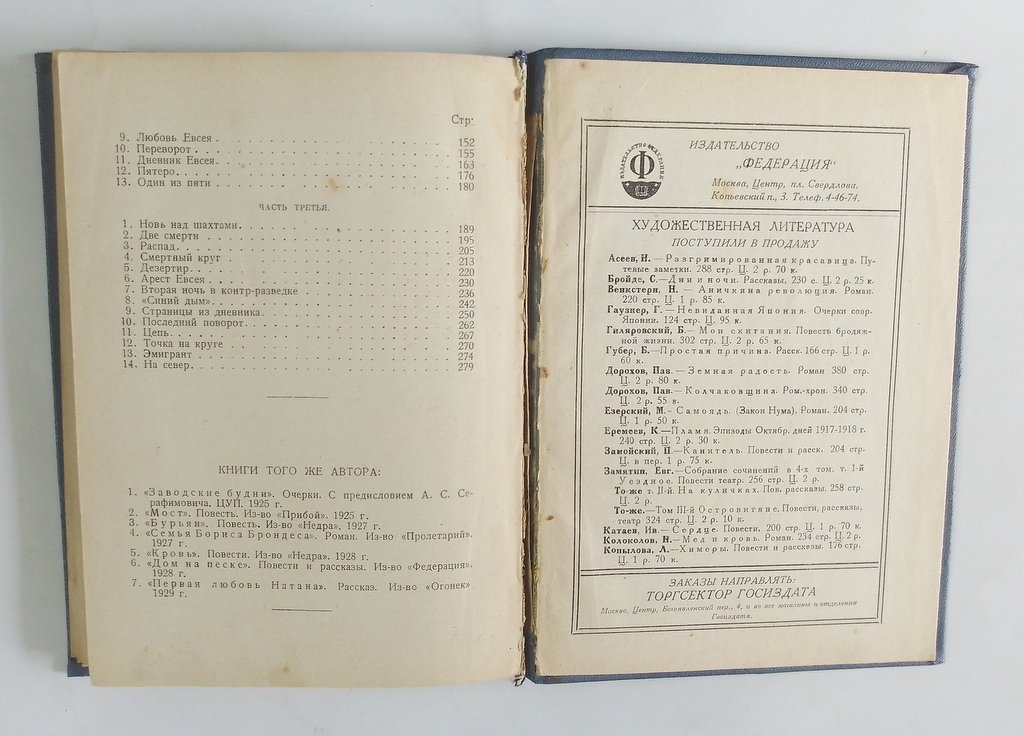 Стр.
9. Любовь Евсея . . . . . . . . . . 152
10. Переворот . . . . . . . . . . 155
11. Дневник Евсея . . . . . . . . . . 163
12. Пятеро . . . . . . . . . . 176
13. Один из пяти . . . . . . . . . . 180
ЧАСТЬ ТРЕТЬЯ.
1. Новь над шахтами . . . . . . . . . . 189
2. Две смерти . . . . . . . . . . 195
3. Распад . . . . . . . . . . 205
4. Смертный круг . . . . . . . . . . 213
5. Дезертир . . . . . . . . . . 220
6. Арест Евсея . . . . . . . . . . 230
7. Вторая ночь в контр-разведке . . . . . . . . . . 236
8. «Синий дым» . . . . . . . . . . 242
9. Страницы из дневника . . . . . . . . . . 250
10. Последний поворот . . . . . . . . . . 262
11. Цепь . . . . . . . . . . 267
12. Точка на круге . . . . . . . . . . 270
13. Эмигрант . . . . . . . . . . 274
14. На север . . . . . . . . . . 279
КНИГИ ТОГО ЖЕ АВТОРА:
1. «Заводские будни». Очерки. С предисловием А. С. Се-
рафимовича. ЦУП. 1925 г.
2. «Мост». Повесть. Из-во «Прибой». 1925 г.
3. «Бурьян». Повесть. Из-во «Недра», 1927 г.
4. «Семья Бориса Брондеса». Роман. Из-во «Пролетарий».
1927 г.
5. «Кровь». Повести. Из-во «Недра». 1928 г.
6. «Дом на песке». Повести и рассказы. Из-во «Федерация».
1928 г.
7. «Первая любовь Натана». Рассказ. Из-во «Огонек»
1929 г.
ИЗДАТЕЛЬСТВО ФЕДЕРАЦИЯ
Ф
ИЗДАТЕЛЬСТВО
„ФЕДЕРАЦИЯ“
Москва, Центр, пл. Свердлова.
Копьевский п., 3. Телеф. 4-46-74.
ХУДОЖЕСТВЕННАЯ ЛИТЕРАТУРА
ПОСТУПИЛИ В ПРОДАЖУ
Асеев, Н. — Разгримированная красавица. Пу-
тевые заметки. 288 стр. Ц. 2 р. 70 к.
Бройде, С.—Дни и ночи. Рассказы, 230 с. Ц. 2 р. 25 к.
Венкстерн, Н. — Аничкина революция. Роман.
220 стр. Ц. 1 р. 85 к.
Гаузнер, Г. — Невиданная Япония. Очерки совр.
Японии. 124 стр. Ц. 95 к.
Гиляровский, Б.— Мои скитания. Повесть бродяж-
ной жизни. 302 стр. Ц. 2 р. 65 к.
Губер, Б.—Простая причина. Расск. 166 стр. Ц. 1 р.
60 к.
Дорохов, Пав. — Земная радость. Роман 380 стр.
Ц. 2 р. 80 к.
Дорохов, Пав.— Колчаковщина. Ром.-хрон. 340 стр.
Ц. 2 р. 55 к.
Езерский, М.- Самоядь. (Закон Нума), Роман. 204 стр.
Ц. 1 р. 50 к.
Еремеев, К.—Пламя. Эпизоды Октябр. дней 1917-1918 г.
240 стр. Ц. 2 р. 30 к.
Замойский, П.— Канитель. Повести и расск. 204 стр.
Ц. в пер. 1 р. 75 к.
Замятин, Евг.—Собрание сочинений в 4-х том. т. 1-й
Уездное. Повести театр. 256 стр. Ц. 2 р.
То-же т. II-й. На куличках. Пов. рассказы. 258 стр.
Ц. 2 р.
То-же.—Том III-й Островитяне. Повести, рассказы,
театр 324 стр. Ц. 2 р. 10 к.
Катаев, Ив.—Сердце. Повести. 200 стр. Ц. 1 р. 70 к.
Колоколов, Н.—Мед и кровь. Роман. 234 стр. Ц. 2 р.
Копылова, Л.—Химеры. Повести и рассказы. 176 стр.
Ц. 1 р. 70 к.
ЗАКАЗЫ НАПРАВЛЯТЬ:
ТОРГСЕКТОР ГОСИЗДАТА
Москва, Центр, Богоявленский пер., 4, и во все магазины и отделения
Госиздата.